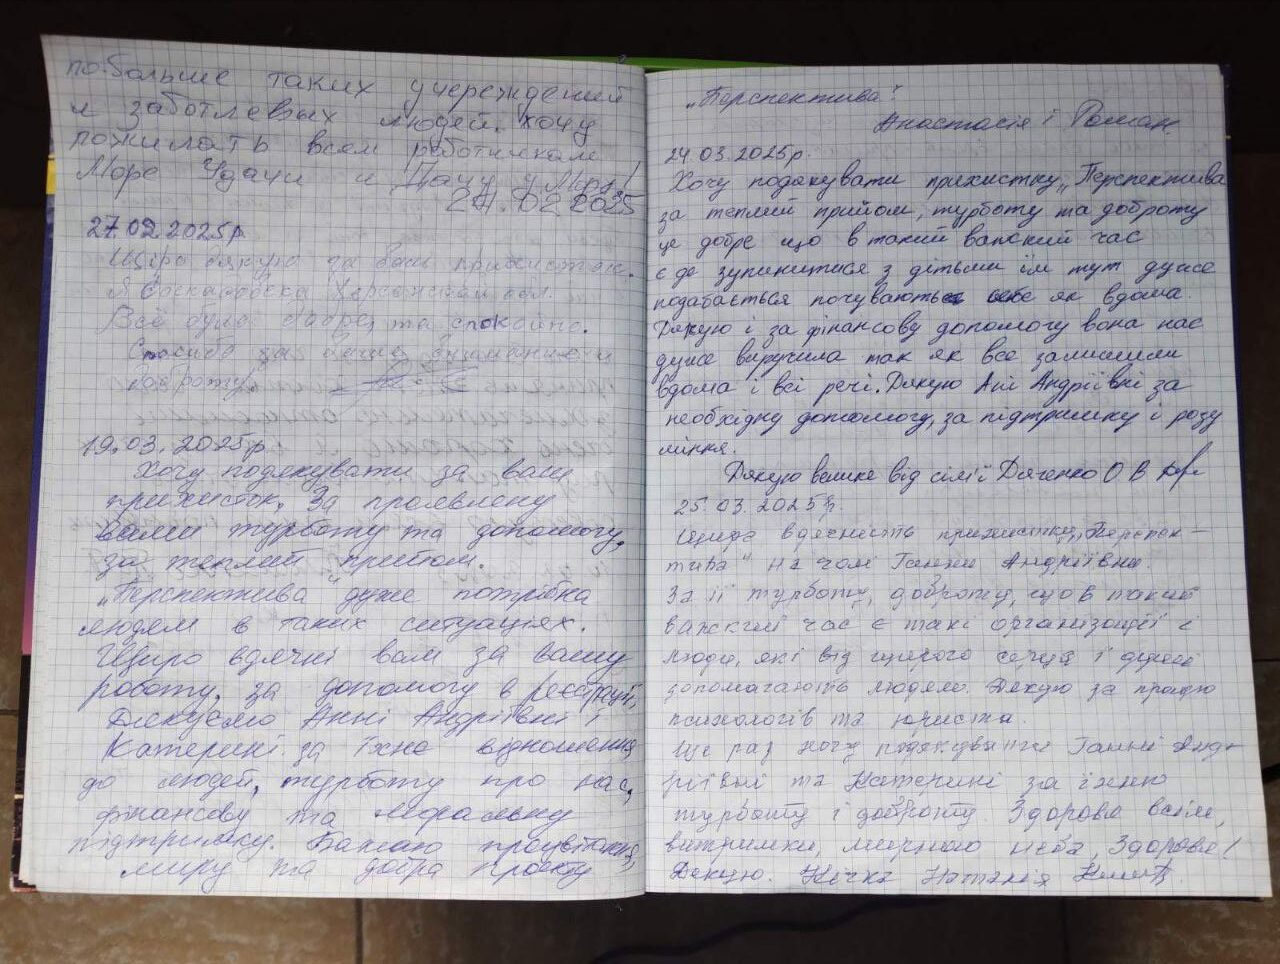 побольше таких учереждений
и заботлевых людей. хочу
пожилать всем работникам
Море Удачи и Дачу у Моря!
27.02.2025р
Щіро дякую за ваш прихисток.
Херсонская обл.
Всё було добре та спокойно.
Спосибо за
доброту!
19.03.2025р.
Хочу подякувати за ваш
прихисток. За проявлену
вами турботу та допомогу,
за теплий прийом.
"Перспектива" дуже потрібна
людям в таких ситуаціях.
Щиро вдячні вам за вашу
роботу, за допомогу в реєстрації,
Дякуємо Анні Андріївні і
Катерині за їхнє відношення
до людей, турботу про нас,
фінансову та моральну
підтримку. Бажаю процвітання,
миру та добра проєкту
„Перспектива"!
Анастасія і Роман.
24.03.2025р.
Хочу подякувати прихистку „Перспектива
за теплий прийом, турботу та доброту
це добре що в такий важкий час
є де зупинитися з дітьми їм тут дуже
подабається почувають себе як вдома.
Дякую і за фінансову допомогу вона нас
дуже виручила так як все залишили
вдома і всі речі. Дякую Ані Андріївні за
необхідну допомогу, за підтримку і розу
міння.
Дякую велике від сім'ї Дяченко О В
25.03.2025р.
Щира вдячність прихистку „Перспек-
тива" на чолі Ганни Андріївни.
За її турботу, доброту, що в такий
важкий час є такі організації і
люди, які від щирого серця і душі
допомагають людям. Дякую за працю
психологів та юриста.
Ще раз хочу подякувати Ганні Анд-
ріївні та Катерині за їхню
турботу і доброту. Здоровя всім,
витримки, мирного неба, Здоровя!
Дякую. Наталія